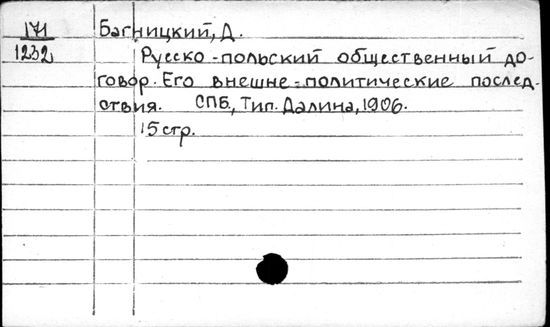 171 Багницкий, Д.
1232 Русско-польский общественный до-
говор. Его внешне-политические послед-
ствия. СПБ, Тип. Далина, 1906.
15 стр.